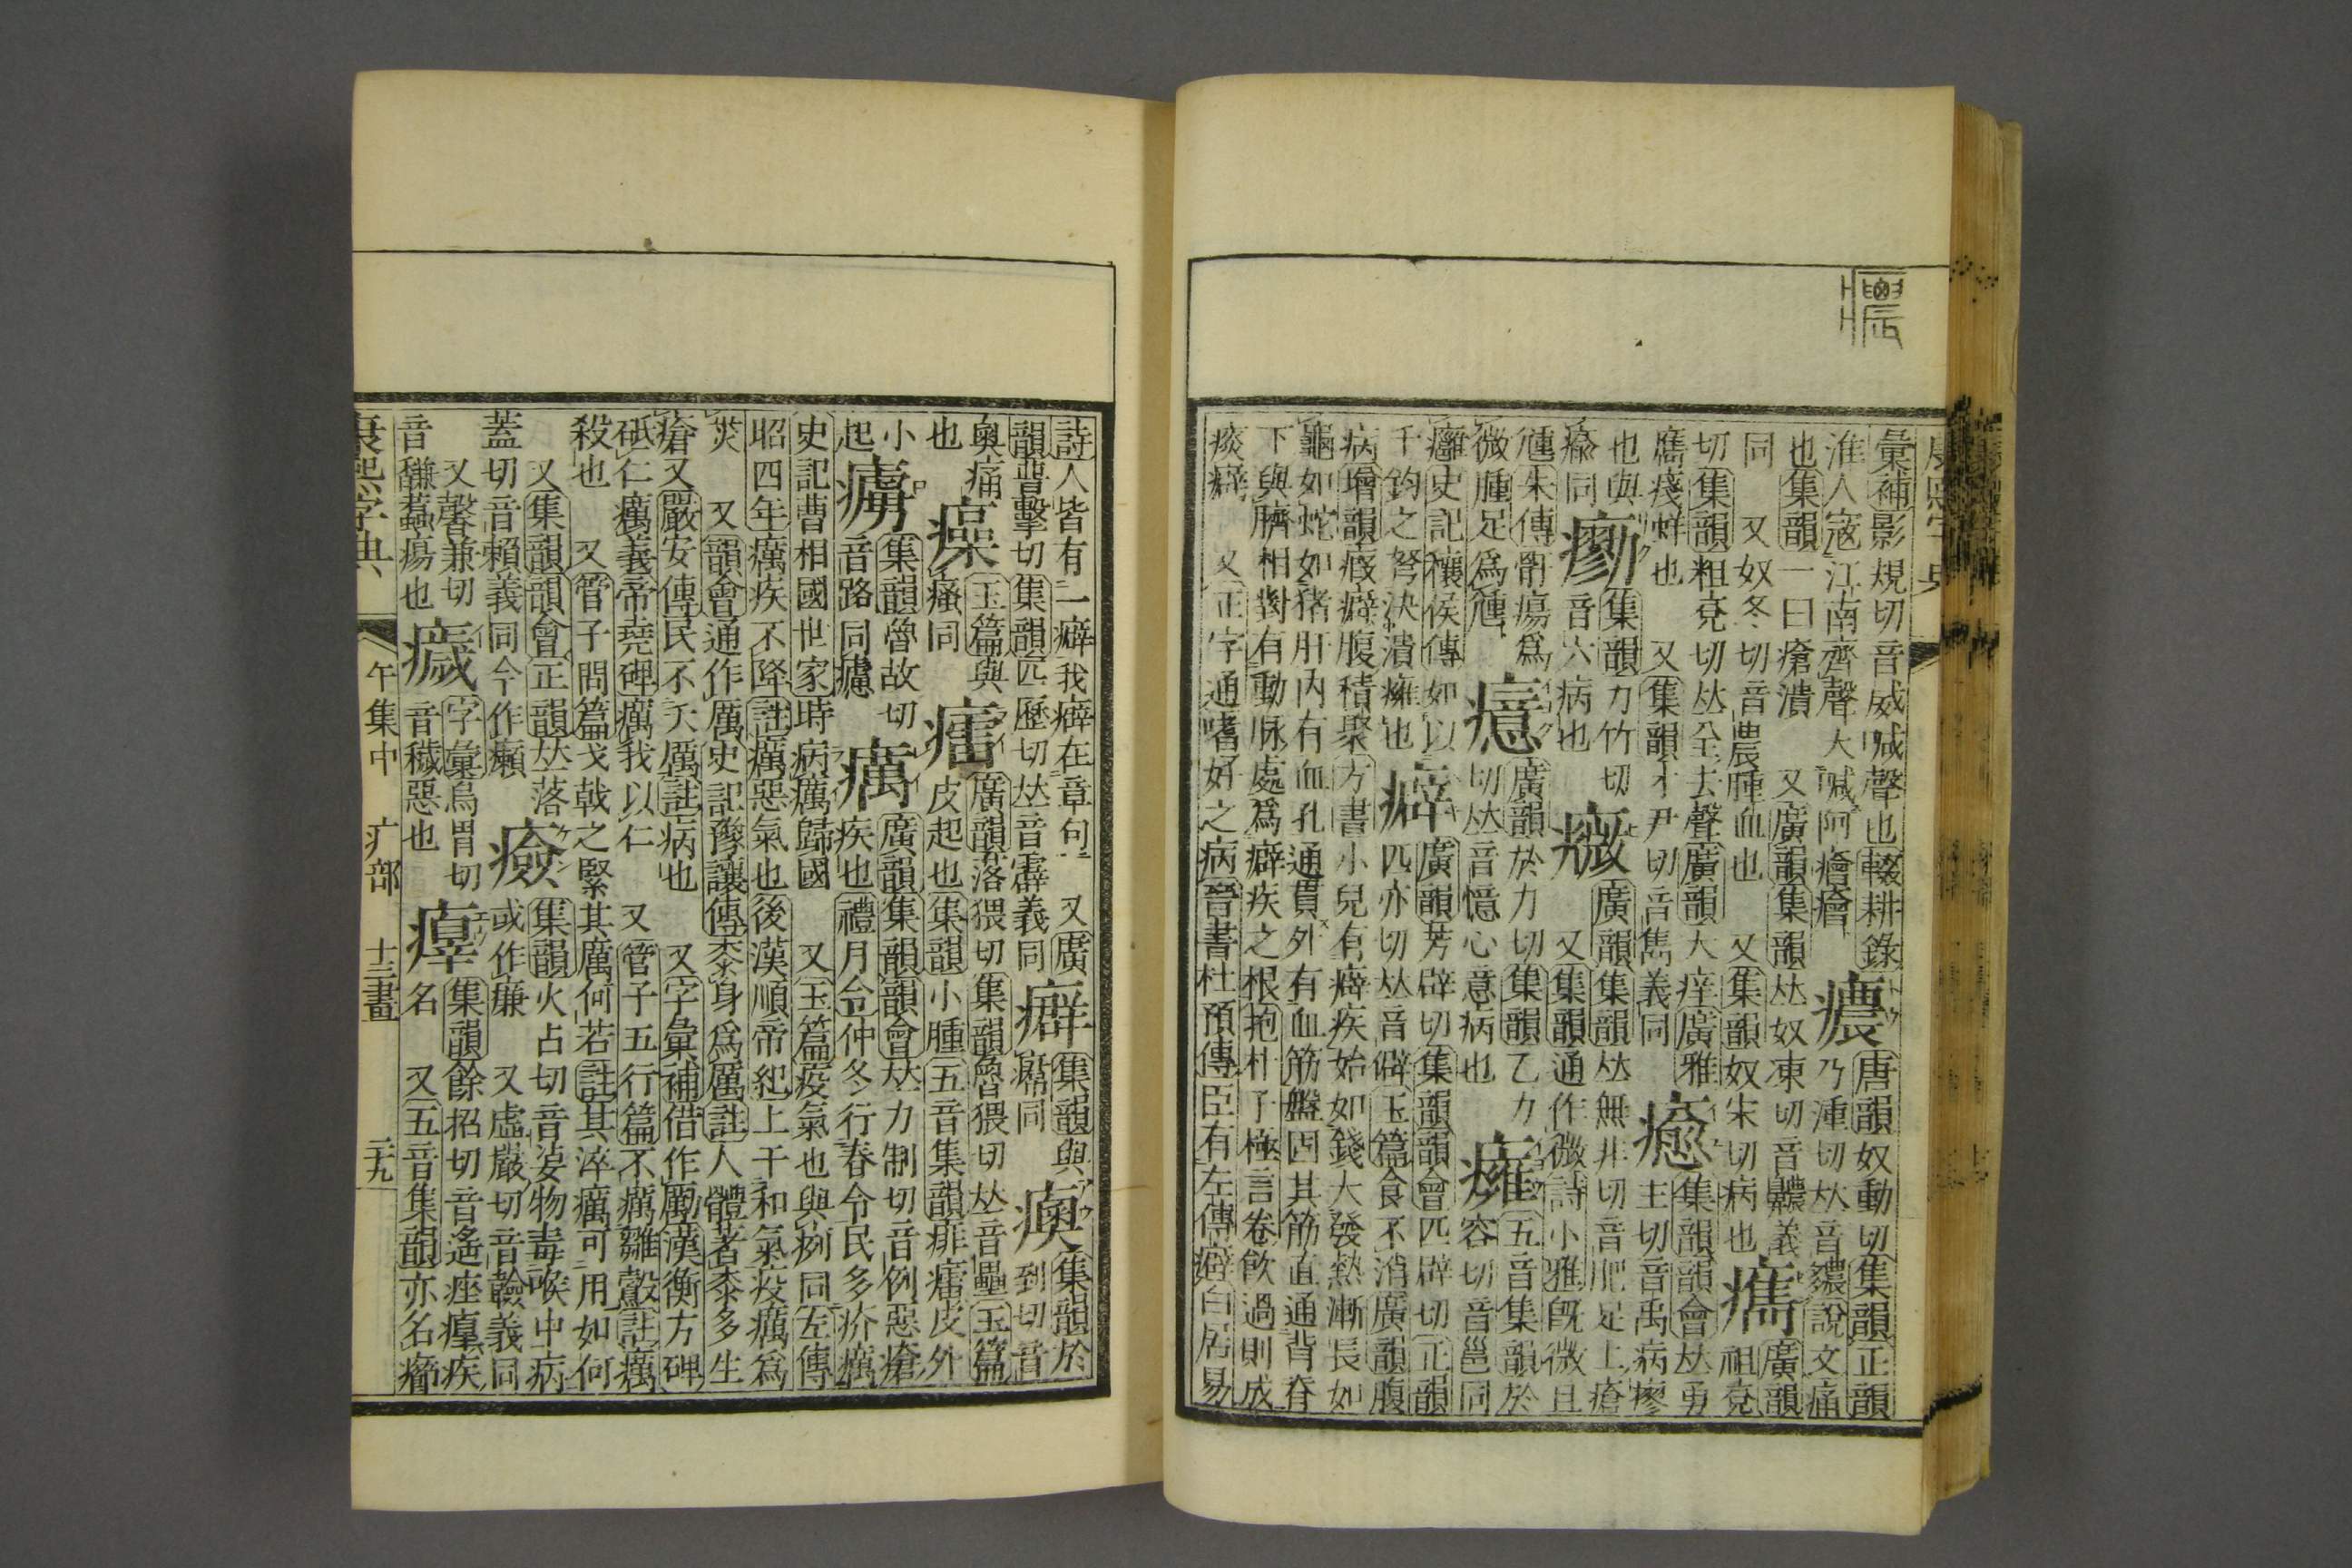 彙補影規切音威喊聲也輟耕錄
淮人寇江南齊聲大喊阿㿔㿔
癑
唐韻奴動切集韻正韻
乃湩切𠀤音繷說文痛
也集韻一曰瘡潰
又廣韻集韻𠀤奴凍切音齈義
同
又奴冬切音農腫血也
又集韻奴宋切病也
癄
廣韻
祖兗
切集韻粗兗切𠀤全去聲廣韻大痓廣雅
癕痿蛘也
又集韻才尹切音雋義同
癒
集韻韻會𠀤勇
主切音禹病瘳
也與
瘉同
㿐
集韻力竹切
音六病也
癓
廣韻集韻𠀤無非切音肥足上瘡
又集韻通作微詩小雅旣微且
尰朱傳骭瘍爲
微腫足爲尰
癔
廣韻於力切集韻乙力
切𠀤音憶心意病也
癕
五音集韻於
容切音邕同
癰史記穰侯傳如以
千鈞之弩決潰癕也
癖
廣韻芳辟切集韻韻會匹辟切正韻
匹亦切𠀤音僻玉篇食不消廣韻腹
病增韻癥癖腹積聚方書小兒有癖疾始如錢大發熱漸長如
龜如蛇如猪肝内有血孔通貫外有血筋盤固其筋直通背脊
下與臍相對有動脉處爲癖疾之根抱朴子極言卷飮過則成
痰癖
又正字通嗜好之病晉書杜預傳臣有左傳癖白居易
詩人皆有一癖我癖在章句
又廣
韻普擊切集韻匹歷切𠀤音霹義同
癖
集韻與
㿙同
㾨
集韻於
到切音
奧痛
也
癙
玉篇與
瘙同
㿔
廣韻落猥切集韻魯猥切𠀤音壘玉篇
皮起也集韻小腫五音集韻痱㿔皮外
小
起
㿖
集韻魯故切
音路同㿖
癘
廣韻集韻韻會𠀤力制切音例惡瘡
疾也禮月令仲冬行春令民多疥癘
史記曹相國世家時病癘歸國
又玉篇疫氣也與痢同左傳
昭四年癘疾不降註癘惡氣也後漢順帝紀上干和氣疫癘爲
災
又韻會通作厲史記豫讓傳漆身爲厲註人體著漆多生
瘡又嚴安傳民不夭厲註病也
又字彙補借作厲漢衡方碑
砥仁癘義帝堯碑癘我以仁
又管子五行篇不癘雛鷇註癘
殺也
又管子問篇戈戟之緊其厲何若註其淬癘可用如何
又集韻韻會正韻𠀤落
蓋切音賴義同今作癩
㿌
集韻火占切音妛物毒喉中病
或作㾾
又虛嚴切音㿌義同
又馨兼切
音馦蠚瘍也
癐
字彙烏胃切
音穢惡也
㿑
集韻餘招切音遙痤㿑疾
名
又五音集韻亦名癤
康熙字典
午集中
疒部
十三畫
三九